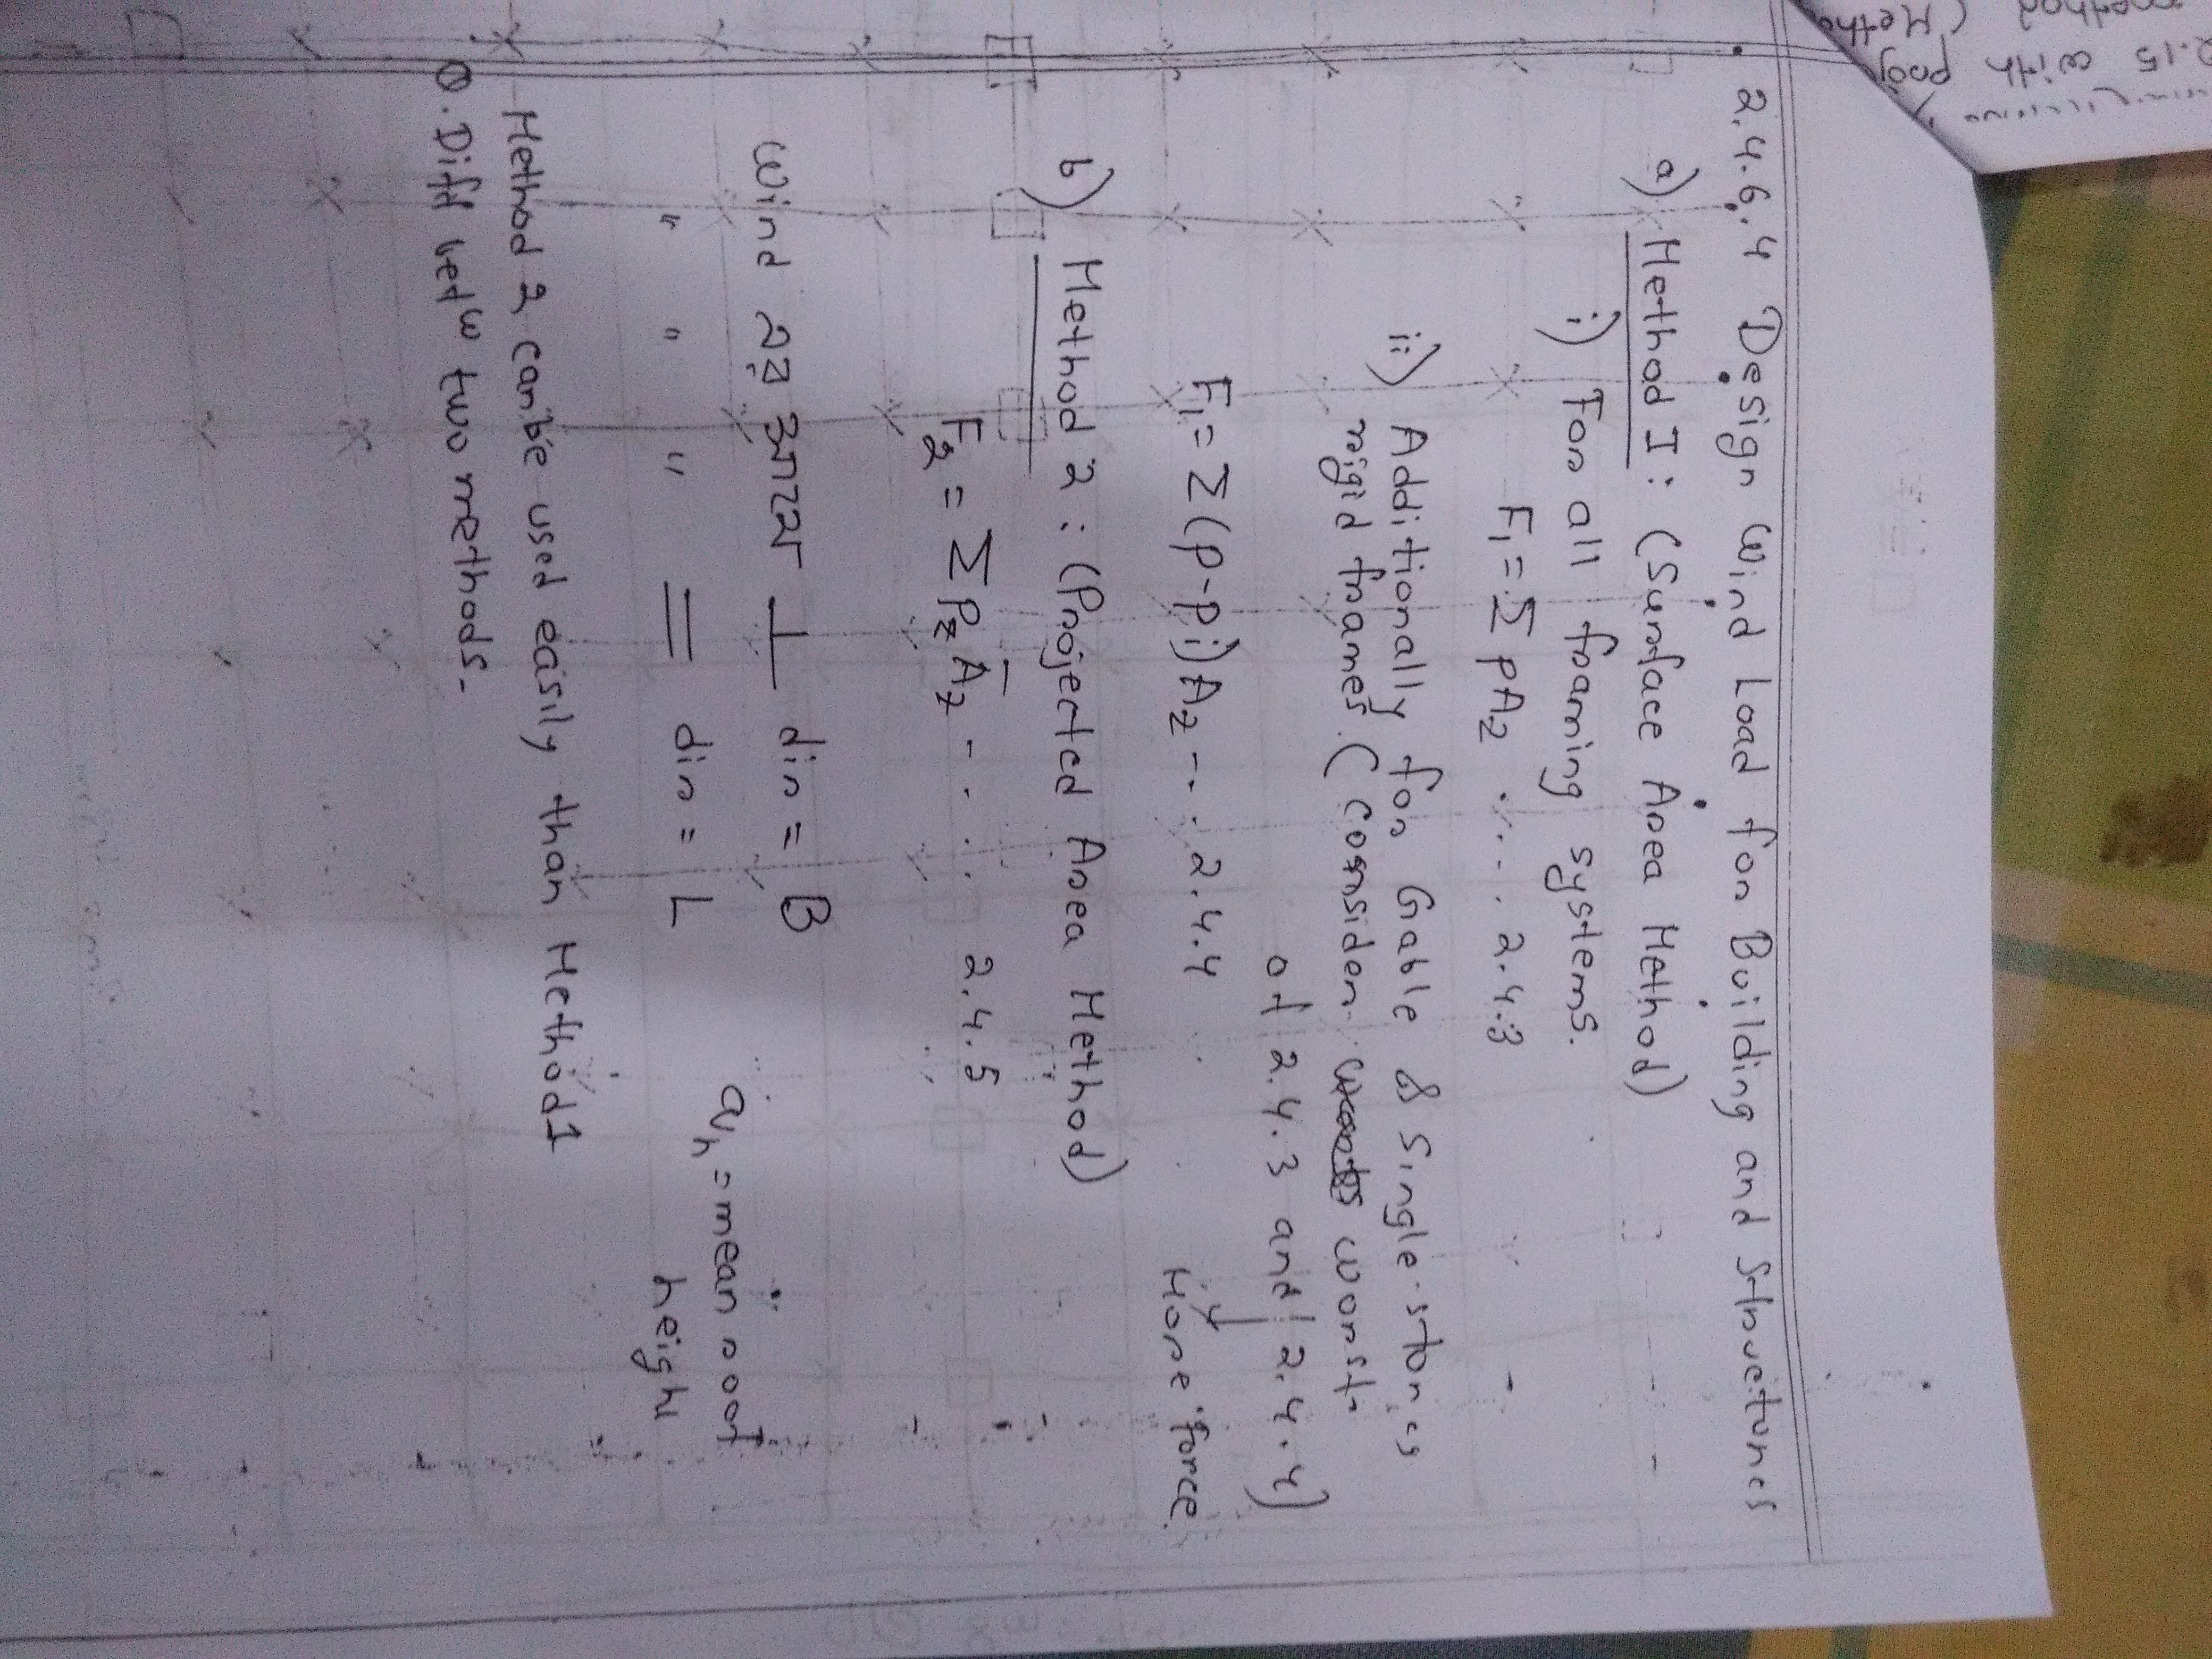 2.4.6.4 Design Wind Load for Building and Structures
a) Method I: (Surface Area Method)
i) For all framing systems.
F₁ = Σ p A₂ ..... 2.4.3
ii) Additionally for Gable & Single stories
rigid frames (consider worst
of 2.4.3 and 2.4.4)
F₁ = Σ(p-pi) A₂ -.. 2.4.4
More force
b) Method 2 : (Projected Area Method)
F₂ = Σ P_z A̅_z - . . . 2.4.5
Wind হয় আসে ⊥ dir = B
" " " = dir = L
a_h = mean roof
height
Method 2 can be used easily than Method 1
Q. Diff betw two methods.
2.15 with pag
method (Metho